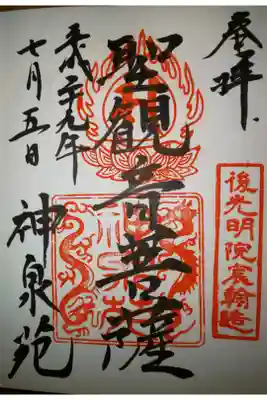 奉拝
後光明院宸翰蹟
聖観音菩薩
平成二十九年
七月五日
神泉苑